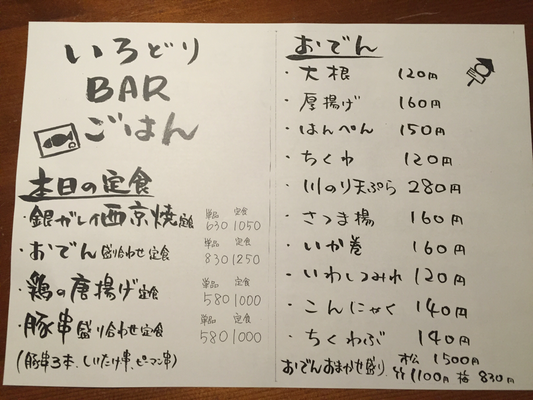 いろどり
BAR
ごはん
本日の定食
・銀ガレイ西京焼定食 単品 630 定食 1050
・おでん盛り合わせ定食 単品 830 定食 1250
・鶏の唐揚げ定食 単品 580 定食 1000
・豚串盛り合わせ定食 単品 580 定食 1000
(豚串3本、しいたけ串、ピーマン串)
おでん
・大根 120円
・厚揚げ 160円
・はんぺん 150円
・ちくわ 120円
・川のり天ぷら 280円
・さつま揚 160円
・いか巻 160円
・いわしつみれ 120円
・こんにゃく 140円
・ちくわぶ 140円
おでんおまかせ盛り 松 1500円
竹 1100円 梅 830円